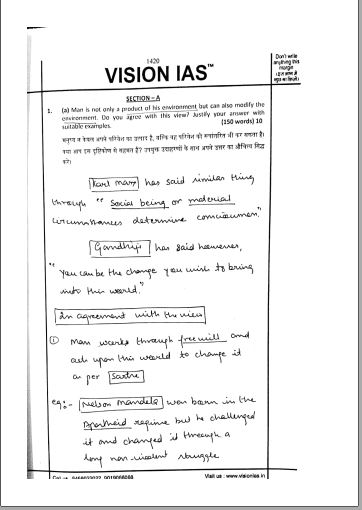 1420
VISION IAS™
Don't write
anything this
margin
SECTION – A
1. (a) Man is not only a product of his environment but can also modify the
environment. Do you agree with this view? Justify your answer with
suitable examples. (150 words) 10
मनुष्य न केवल अपने परिवेश का उत्पाद है, बल्कि वह परिवेश को रूपांतरित भी कर सकता है।
क्या आप इस दृष्टिकोण से सहमत हैं? उपयुक्त उदाहरणों के साथ अपने उत्तर का औचित्य सिद्ध
करें।
Karl Marx has said similar thing
through "Social being or material
circumstances determine consciousness."
Gandhiji has said however,
"You can be the change you wish to bring
into this world."
In agreement with the view
① Man works through freewill and
acts upon this world to change it
as per Sartre
eg:- Nelson Mandela was born in the
Apartheid regime but he challenged
it and changed it through a
long non-violent struggle
Visit us : www.visionias.in